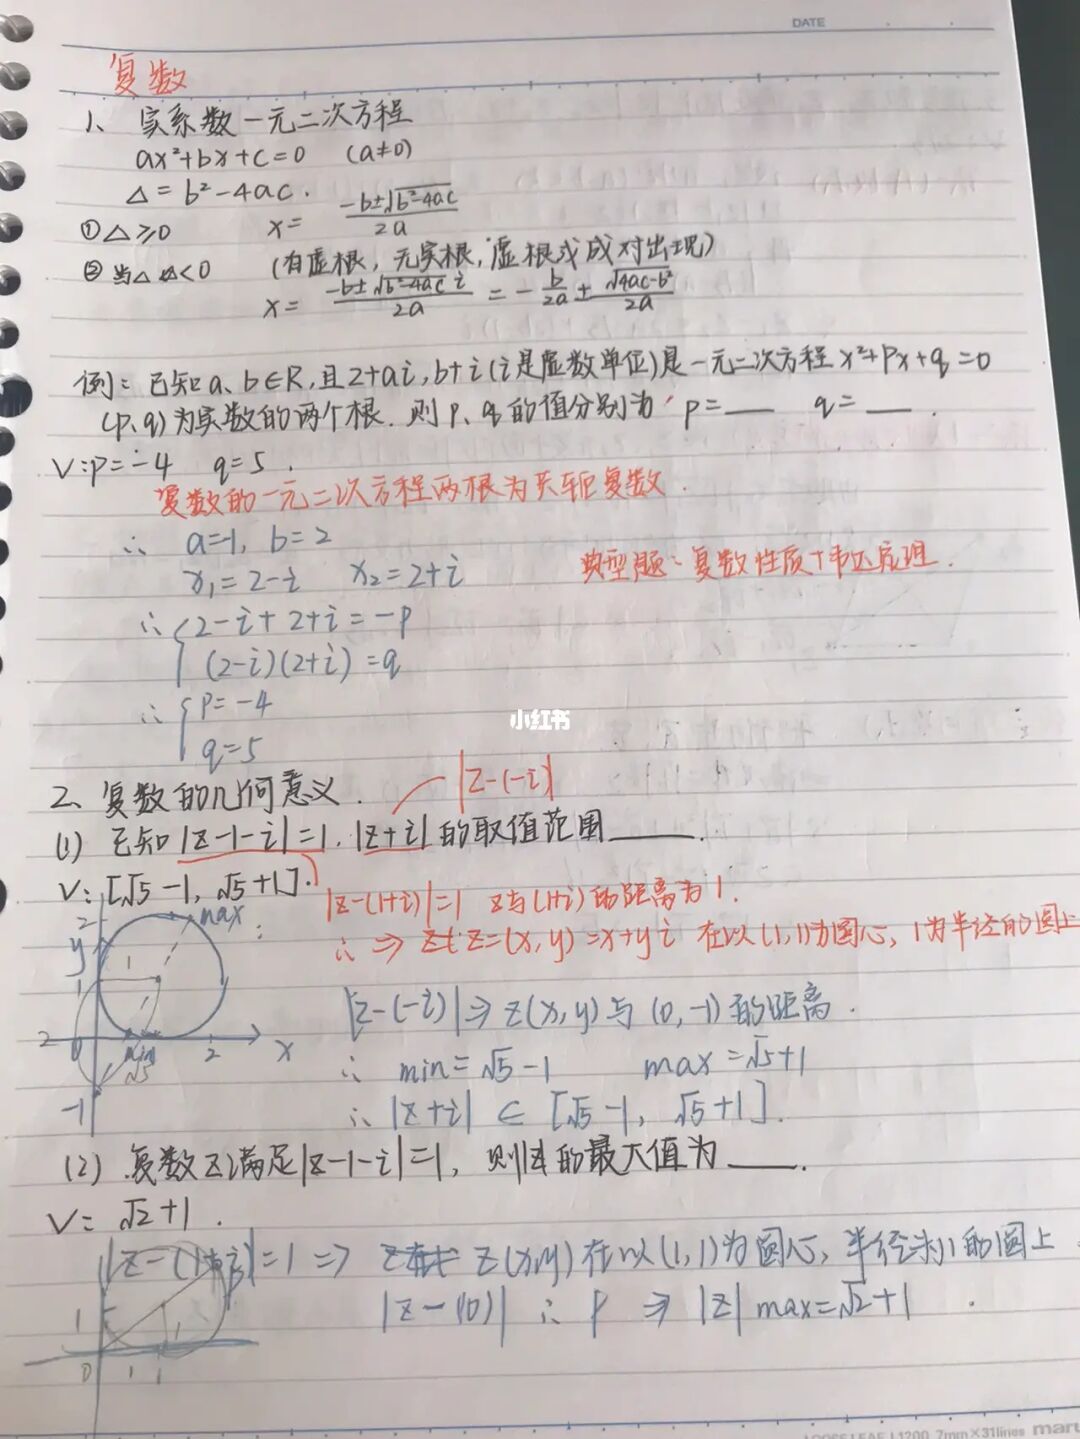 DATE
复数
1、实系数一元二次方程
ax²+bx+c=0 (a≠0)
△=b²-4ac.
①△≥0 x=(-b±√(b²-4ac))/2a
②当△<0 (有虚根,无实根,虚根或成对出现)
x=(-b±√(b²-4ac) i)/2a = -b/2a ± √(4ac-b²)/2a
例:已知a、b∈R,且2+ai,b+i(i是虚数单位)是一元二次方程x²+Px+q=0
(p、q)为实数的两个根.则p、q的值分别为 p=___ q=___.
V:p=-4 q=5.
复数的一元二次方程两根为共轭复数.
∴ a=-1, b=2
典型题:复数性质+韦达定理.
x₁=2-i x₂=2+i
∴ {2-i+2+i=-p
(2-i)(2+i)=q
∴ {p=-4
q=5
小红书
2、复数的几何意义.
|z-(-i)|
(1) 已知|z-1-i|=1.|z+i|的取值范围____.
V:[√5-1,√5+1].
|z-(1+i)|=1 z与(1+i)的距离为1.
∴ ⇒ z=(x,y)=x+yi 在以(1,1)为圆心,1为半径的圆上
2 max
y 1
1
2 0 min 2 x
√5
-1
|z-(-i)|⇒z(x,y)与(0,-1)的距离.
∴ min=√5-1 max=√5+1
∴ |z+i| ∈ [√5-1, √5+1].
(2) 复数z满足|z-1-i|=1,则|z|的最大值为____.
V= √2+1.
|z-(1+i)|=1 ⇒ z(x,y)在以(1,1)为圆心,半径为1的圆上
|z-(0)| ∴ ⇒ |z| max=√2+1.
1 1
0 1
LOOSE LEAF L1200 7mm×31lines maru